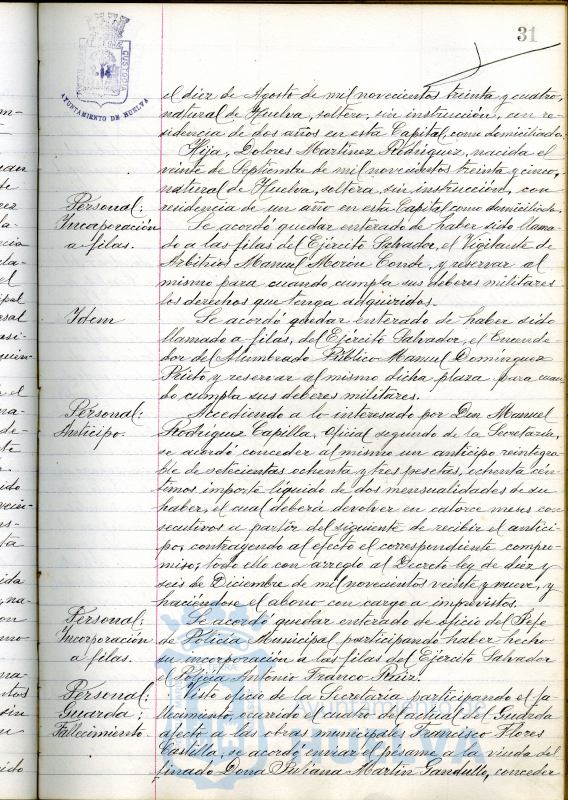 31
AYUNTAMIENTO DE HUELVA
el diez de Agosto de mil novecientos treinta y cuatro,
natural de Huelva, soltero, sin instrucción, con re-
sidencia de dos años en esta Capital, como domiciliado.
Hija, Dolores Martínez Rodríguez, nacida el
veinte de Septiembre de mil novecientos treinta y cinco,
natural de Huelva, soltera, sin instrucción, con
residencia de un año en esta Capital como domiciliada.
Personal:
Incorporación
a filas.
Se acordó quedar enterado de haber sido llama-
do a las filas del Ejército Salvador, el Vigilante de
Arbitrios Manuel Morón Conde, y reservar al
mismo para cuando cumpla sus deberes militares
los derechos que tenga adquiridos.
Idem
Se acordó quedar enterado de haber sido
llamado a filas, del Ejército Salvador, el Encende
dor de Alumbrado Público Manuel Domínguez
Prieto y reservar al mismo dicha plaza para cuan
do cumpla sus deberes militares.
Personal:
Anticipo.
Accediendo a lo interesado por Don Manuel
Rodríguez Capilla, Oficial segundo de la Secretaría,
se acordó conceder al mismo un anticipo reintegra-
ble de setecientas ochenta y tres pesetas, ochenta cén-
timos importe líquido de dos mensualidades de su
haber, el cual deberá devolver en catorce meses con
secutivos a partir del siguiente de recibir el antici-
po, contrayendo al efecto el correspondiente compro-
miso; todo ello con arreglo al Decreto ley de diez y
seis de Diciembre de mil novecientos veinte y nueve, y
haciéndose el abono con cargo a imprevistos.
Personal:
Incorporación
a filas.
Se acordó quedar enterado de oficio del Jefe
de Policía Municipal participando haber hecho
su incorporación a las filas del Ejército Salvador
el Policía Antonio Franco Ruiz.
Personal:
Guarda;
Fallecimiento.
Visto oficio de la Secretaría participando el fa
llecimiento, ocurrido el cuatro del actual del Guarda
afecto a las obras municipales Francisco Flores
Castilla, se acordó enviar el pésame a la viuda del
finado Doña Juliana Martín Gandullo, conceder
Ayuntamiento de
HUELVA